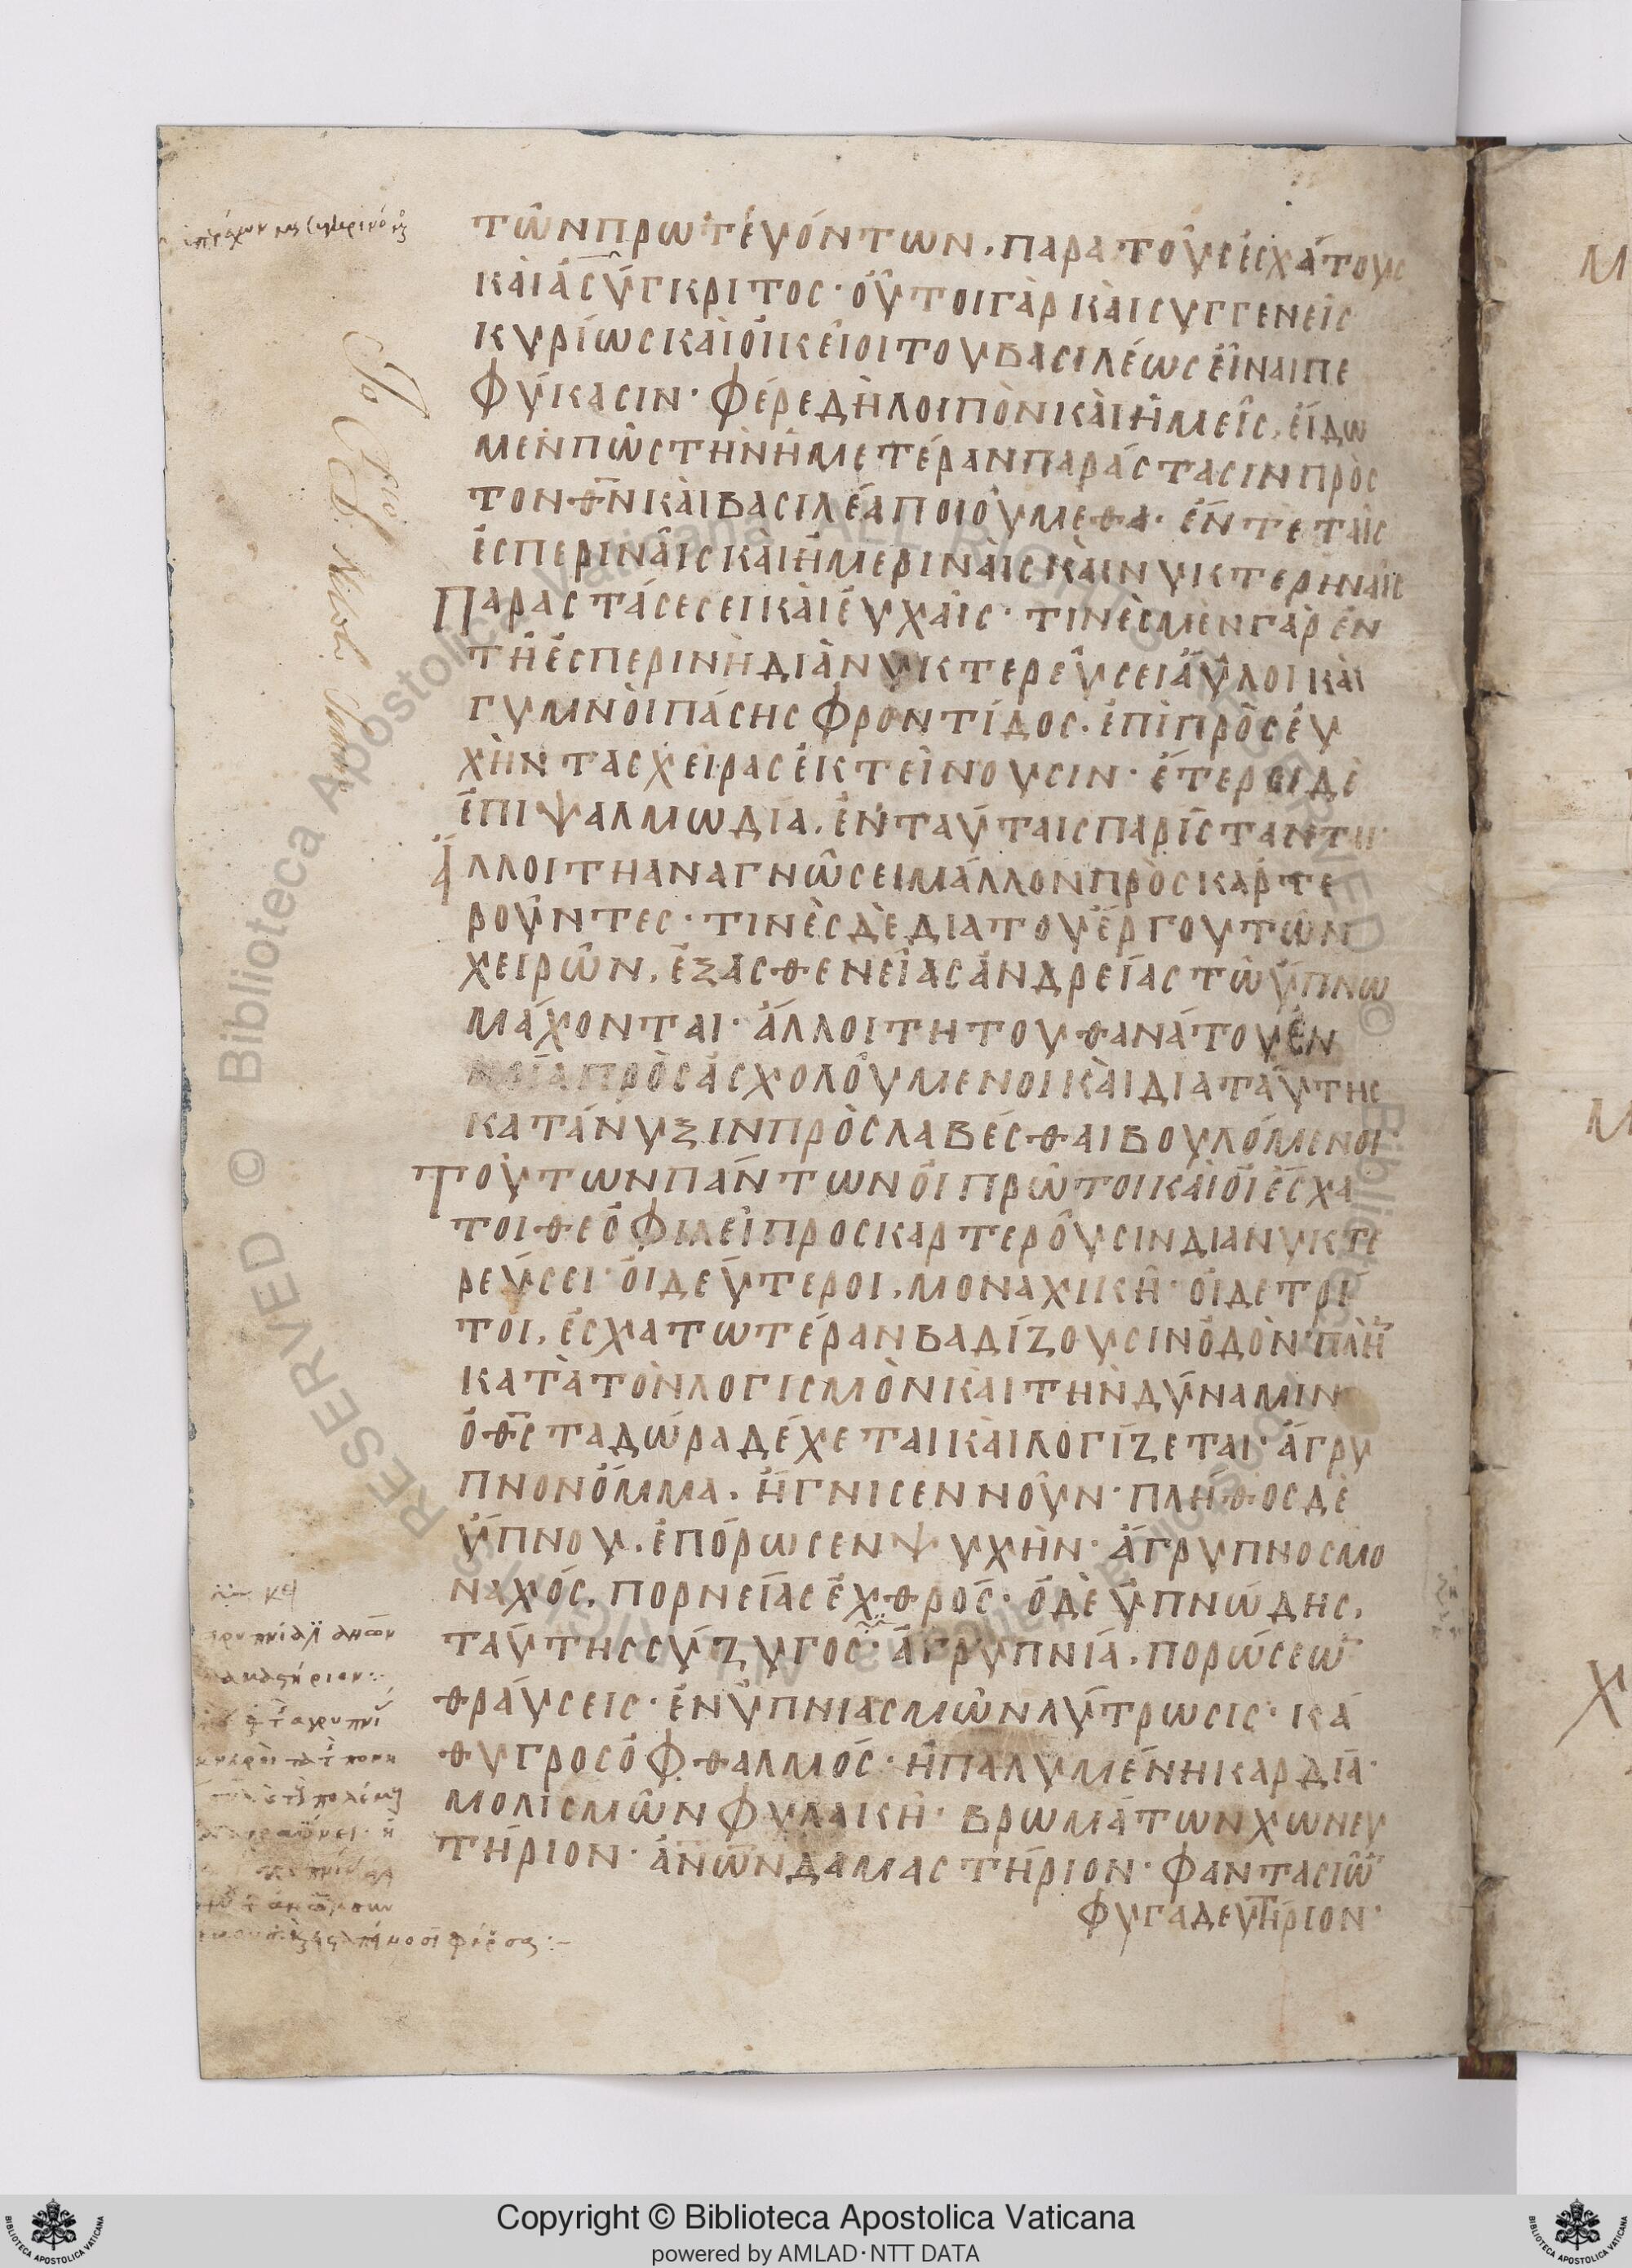 τῶν πρωτευόντων. παρα τοὺς ἐσχάτους
καὶ ἀσύγκριτος· οὗτοι γὰρ καὶ συγγενεῖς
κυρίως καὶ οἰκεῖοι του βασιλέως εἶναι πε
φύκασιν· φέρε δὴ λοιπὸν καὶ ἡμεῖς, εἴδω
μεν πῶς τὴν ἡμετέραν παράστασιν πρὸς
τον θν̅ καὶ βασιλέα ποιούμεθα· ἐν τε ταῖς
ἑσπεριναῖς καὶ ἡμεριναῖς καὶ νυκτερηναῖς
Παραστάσεσει καὶ ἐυχαῖς· τινὲς μὲν γὰρ ἐν
τῆ ἑσπερινὴ διὰνυκτερεύσει ἄϋλοι καὶ
γυμνοὶ πάσης φροντίδος. ἐπὶ πρὸσέυ
χὴν τας χεῖρας ἐκτεῖνουσιν· ἕτεροι δὲ
ἐπι ψαλμωδία, ἐν ταύταις παρίσταντη·
Ἄλλοι τη αναγνώσει μάλλον πρὸσκαρτε
ροῦντες· τινὲς δὲ δια του ἔργου τῶν
χειρῶν, ἐξ ασθενεῖας ἀνδρείας τῶ ὕπνω
μάχονται· ἄλλοι τη του θανάτου ἐν
νοία πρὸσἀσχολούμενοι καὶ δια ταύτης
κατάνυξιν πρὸσλαβέσθαι βουλόμενοι·
Τούτων πάντων οἱ πρῶτοι καὶ οἱ ἔσχα
τοι θεοφιλεῖ προσκαρτεροῦσιν διανυκτε
ρεύσει· ὁι δεύτεροι, μοναχιικῆ· ὁι δε τρί
τοι, ἐσχατωτέραν βαδίζουσιν ὁδὸν· πλὴ
κατὰ τὸν λογισμὸν καὶ την δύναμιν
ὁ θς̅ τα δώρα δέχεται καὶ λογίζεται· ἄγρυ
πνον ὄμμα. ἥγνισεν νοῦν· πλήθος δὲ
ὕπνου. ἐπόρωσεν ψυχὴν· ἄγρυπνος μο
ναχός, πορνείας ἐχθρός· ὁ δὲ ὑπνώδης,
ταύτης σύζυγος· ἀγρυπνία. πορώσεω
θραύσεις· ἐνὑπνιασμῶν λύτρωσις· κά
θυγρος ὀφθαλμός· ἡπαλυμένη καρδία·
μολισμῶν φυλακὴ· βρωμάτων χωνευ
τήριον· ἀνων̅ δαμαστήριον· φαντασιῶ
φυγαδευτήριον·